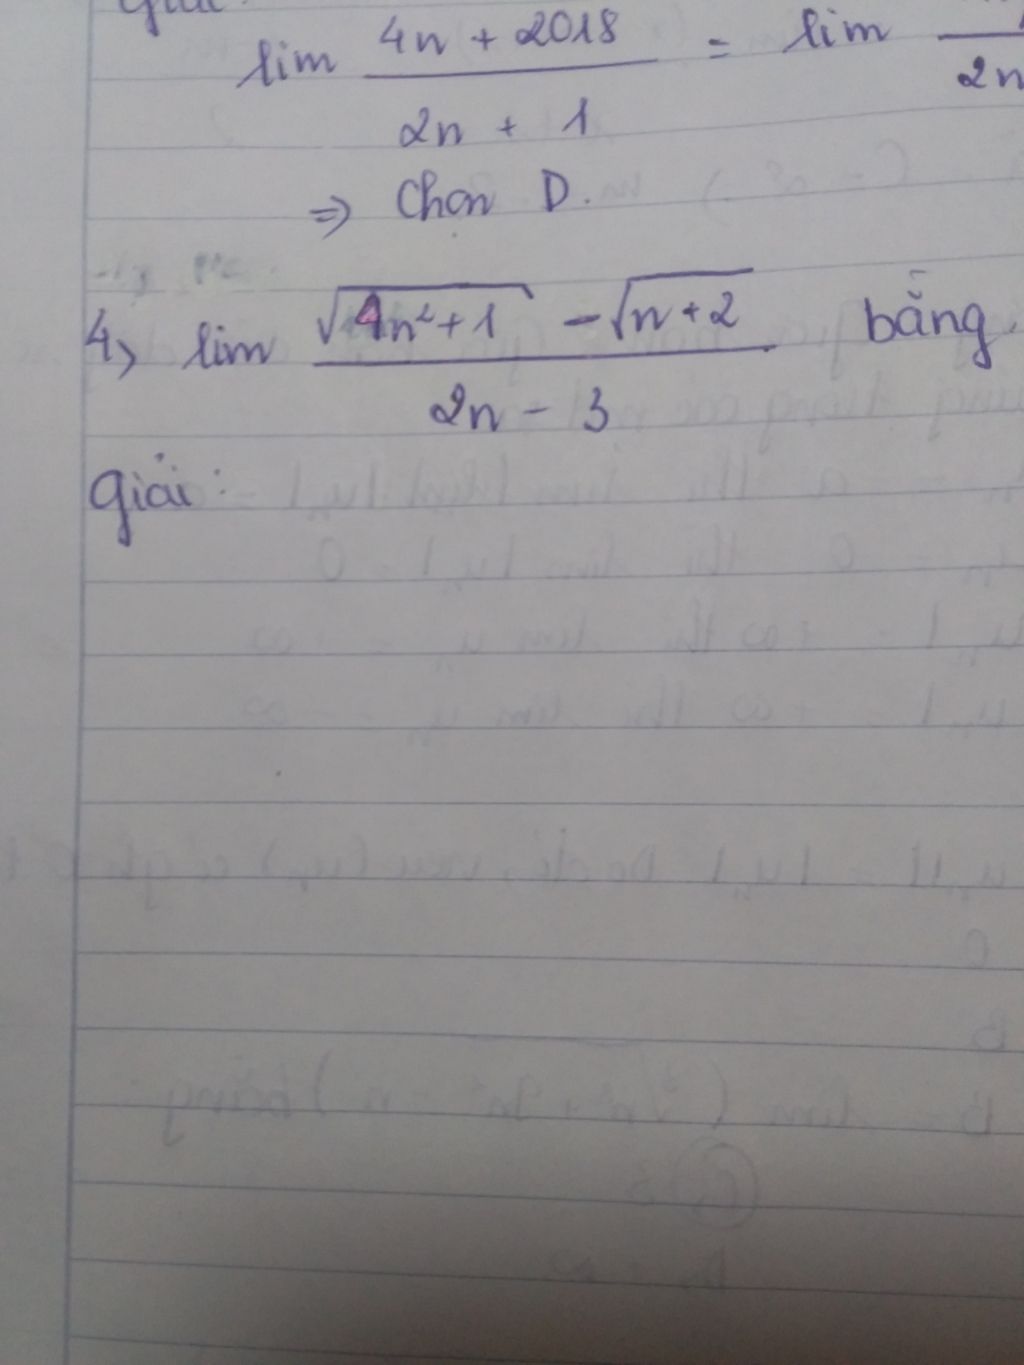 Giải:
lim \frac{4n + 2018}{2n + 1} = lim \frac{}{2n}
⇒ Chọn D.
4, lim \frac{\sqrt{4n² + 1} - \sqrt{n + 2}}{2n - 3} bằng.
Giải: